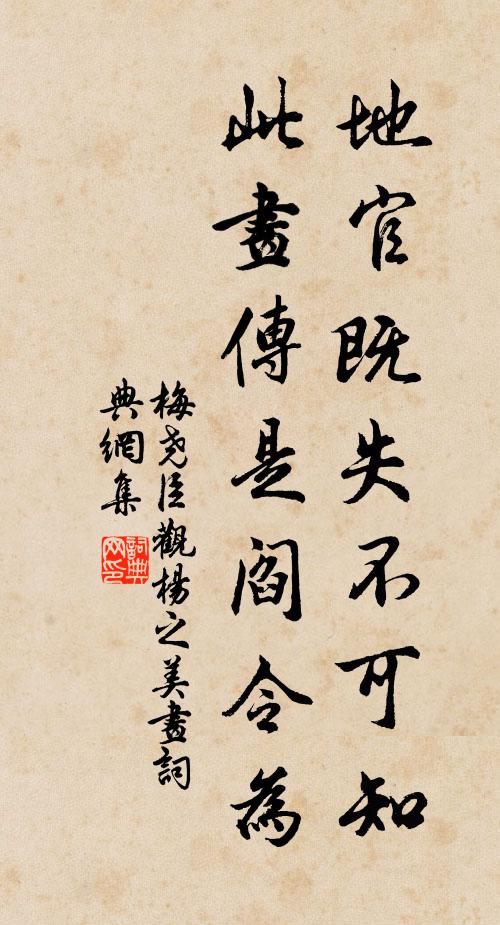 地官既失不可知
此畫傳是閻令為
梅堯臣觀楊之美畫詞
典網集
詞典網印